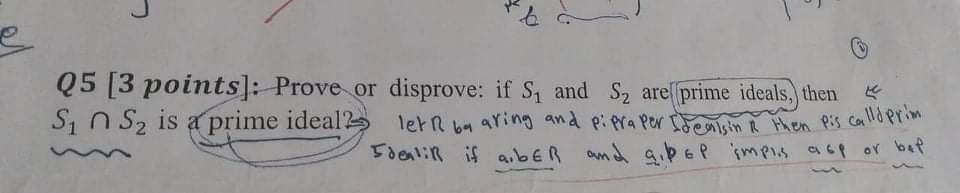 Q5 [3 points]: Prove or disprove: if S₁ and S₂ are prime ideals, then
S₁ ∩ S₂ is a prime ideal? let R ba aring and p: praper Idealsin R then Pis calld prim
Idealir if a,b∈R and a.b∈P impls a∈P or b∈P